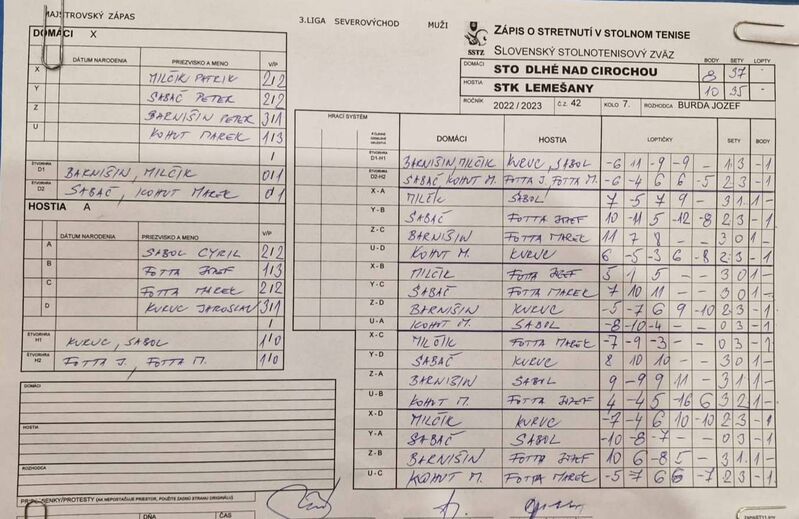 MAJSTROVSKÝ ZÁPAS
3.LIGA SEVEROVÝCHOD MUŽI
ZÁPIS O STRETNUTÍ V STOLNOM TENISE
SSTZ SLOVENSKÝ STOLNOTENISOVÝ ZVÄZ
DOMÁCI STO DLHÉ NAD CIROCHOU
BODY SETY LOPTY
8 37 -
HOSTIA STK LEMEŠANY
10 35 -
ROČNÍK 2022/2023 Č.Z. 42 KOLO 7. ROZHODCA BURDA JOZEF
DOMÁCI X
DÁTUM NARODENIA PRIEZVISKO A MENO V/P
X MILČIK PATRIK 2/2
Y SABAČ PETER 2/2
Z BARNIŠIN PETER 3/1
U KOHUT MAREK 1/3
/
ŠTVORHRA D1 BARNIŠIN, MILČIK 0/1
ŠTVORHRA D2 SABAČ, KOHUT MAREK 0/1
HOSTIA A
DÁTUM NARODENIA PRIEZVISKO A MENO V/P
A SABOL CYRIL 2/2
B FOTTA JOZEF 1/3
C FOTTA MAREK 2/2
D KURUC JAROSLAV 3/1
/
ŠTVORHRA H1 KURUC, SABOL 1/0
ŠTVORHRA H2 FOTTA J, FOTTA M. 1/0
DOMÁCI
HOSTIA
ROZHODCA
DŇA ČAS
HRACÍ SYSTÉM DOMÁCI HOSTIA LOPTIČKY SETY BODY
ŠTVORHRA D1-H1 BARNIŠIN, MILČIK KURUC, SABOL -6 11 -9 -9 - 1 3 -1
ŠTVORHRA D2-H2 SABAČ KOHUT M. FOTTA J, FOTTA M. -6 -4 6 6 -5 2 3 -1
X-A MILČIK SABOL 7 -5 7 9 - 3 1 1 -
Y-B SABAČ FOTTA JOZEF 10 -11 5 -12 -8 2 3 -1
Z-C BARNIŠIN FOTTA MAREK 11 7 8 - - 3 0 1 -
U-D KOHUT M. KURUC 6 -5 -3 6 -8 2 3 -1
X-B MILČIK FOTTA JOZEF 5 1 5 - - 3 0 1 -
Y-C SABAČ FOTTA MAREK 7 10 11 - - 3 0 1 -
Z-D BARNIŠIN KURUC -5 -7 6 9 -10 2 3 -1
U-A KOHUT M. SABOL -8 -10 -4 - - 0 3 -1
X-C MILČIK FOTTA MAREK -7 -9 -3 - - 0 3 -1
Y-D SABAČ KURUC 8 10 10 - - 3 0 1 -
Z-A BARNIŠIN SABOL 9 -9 9 11 - 3 1 1 -
U-B KOHUT M. FOTTA JOZEF 4 -4 5 -16 6 3 2 1 -
X-D MILČIK KURUC -7 -4 6 10 -10 2 3 -1
Y-A SABAČ SABOL -10 -8 -7 - - 0 3 -1
Z-B BARNIŠIN FOTTA JOZEF 10 6 -8 5 - 3 1 1 -
U-C KOHUT M. FOTTA MAREK -5 7 6 -7 2 3 -1